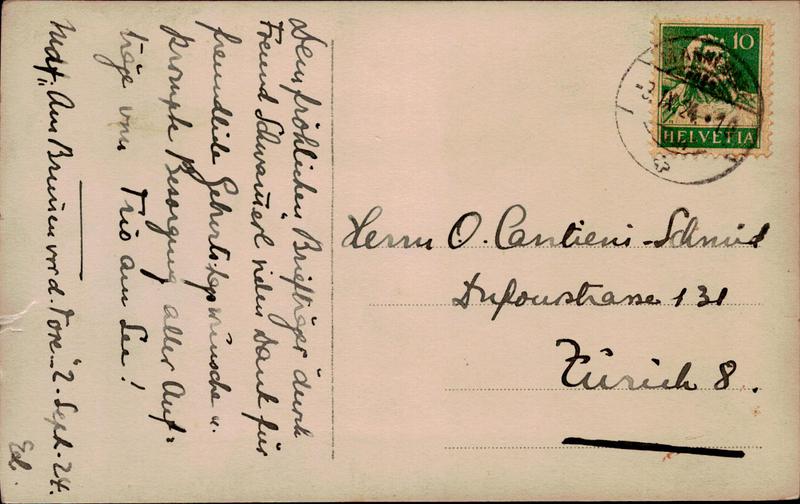 Dem fröhlichen Briefträger durch
Freund Schwauerl vielen Dank für
freundliche Geburtstagswünsche u.
prompte Besorgung aller Auf=
träge vom Trio am See!
"Am Brunnen vor d. Tore" 2. Sept. 24.
Ed.
10
HELVETIA
24
Herrn O. Cantieni-Schmid
Dufourstrasse 131
Zürich 8.